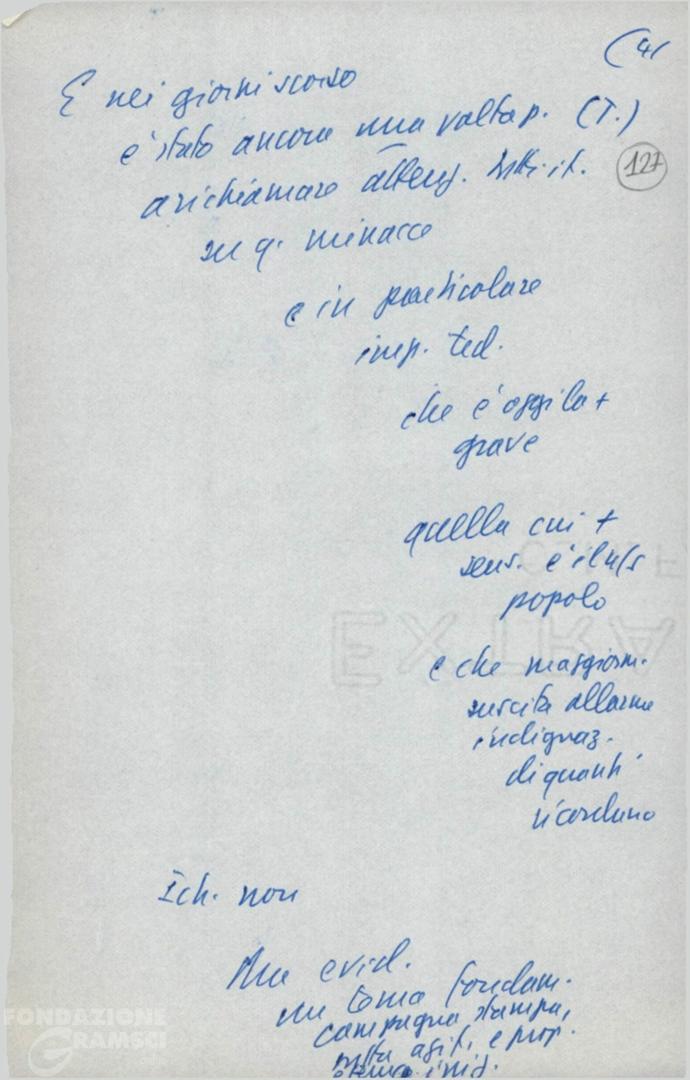 (4/
E nei giorni scorso
è stato ancora una volta p. (T.)
a richiamare attenz.
127
su q. minacce
e in particolare
imp. ted.
che è oggi la +
grave
quella cui +
sens. è il n/s
popolo
e che maggiorm.
suscita allarme
indignaz.
di quanti
ricordano
Ich. non
Ma evid.
un tema fondam.
campagna stampa,
agit. e prop.
iniz.
EXTRA
FONDAZIONE
GRAMSCI